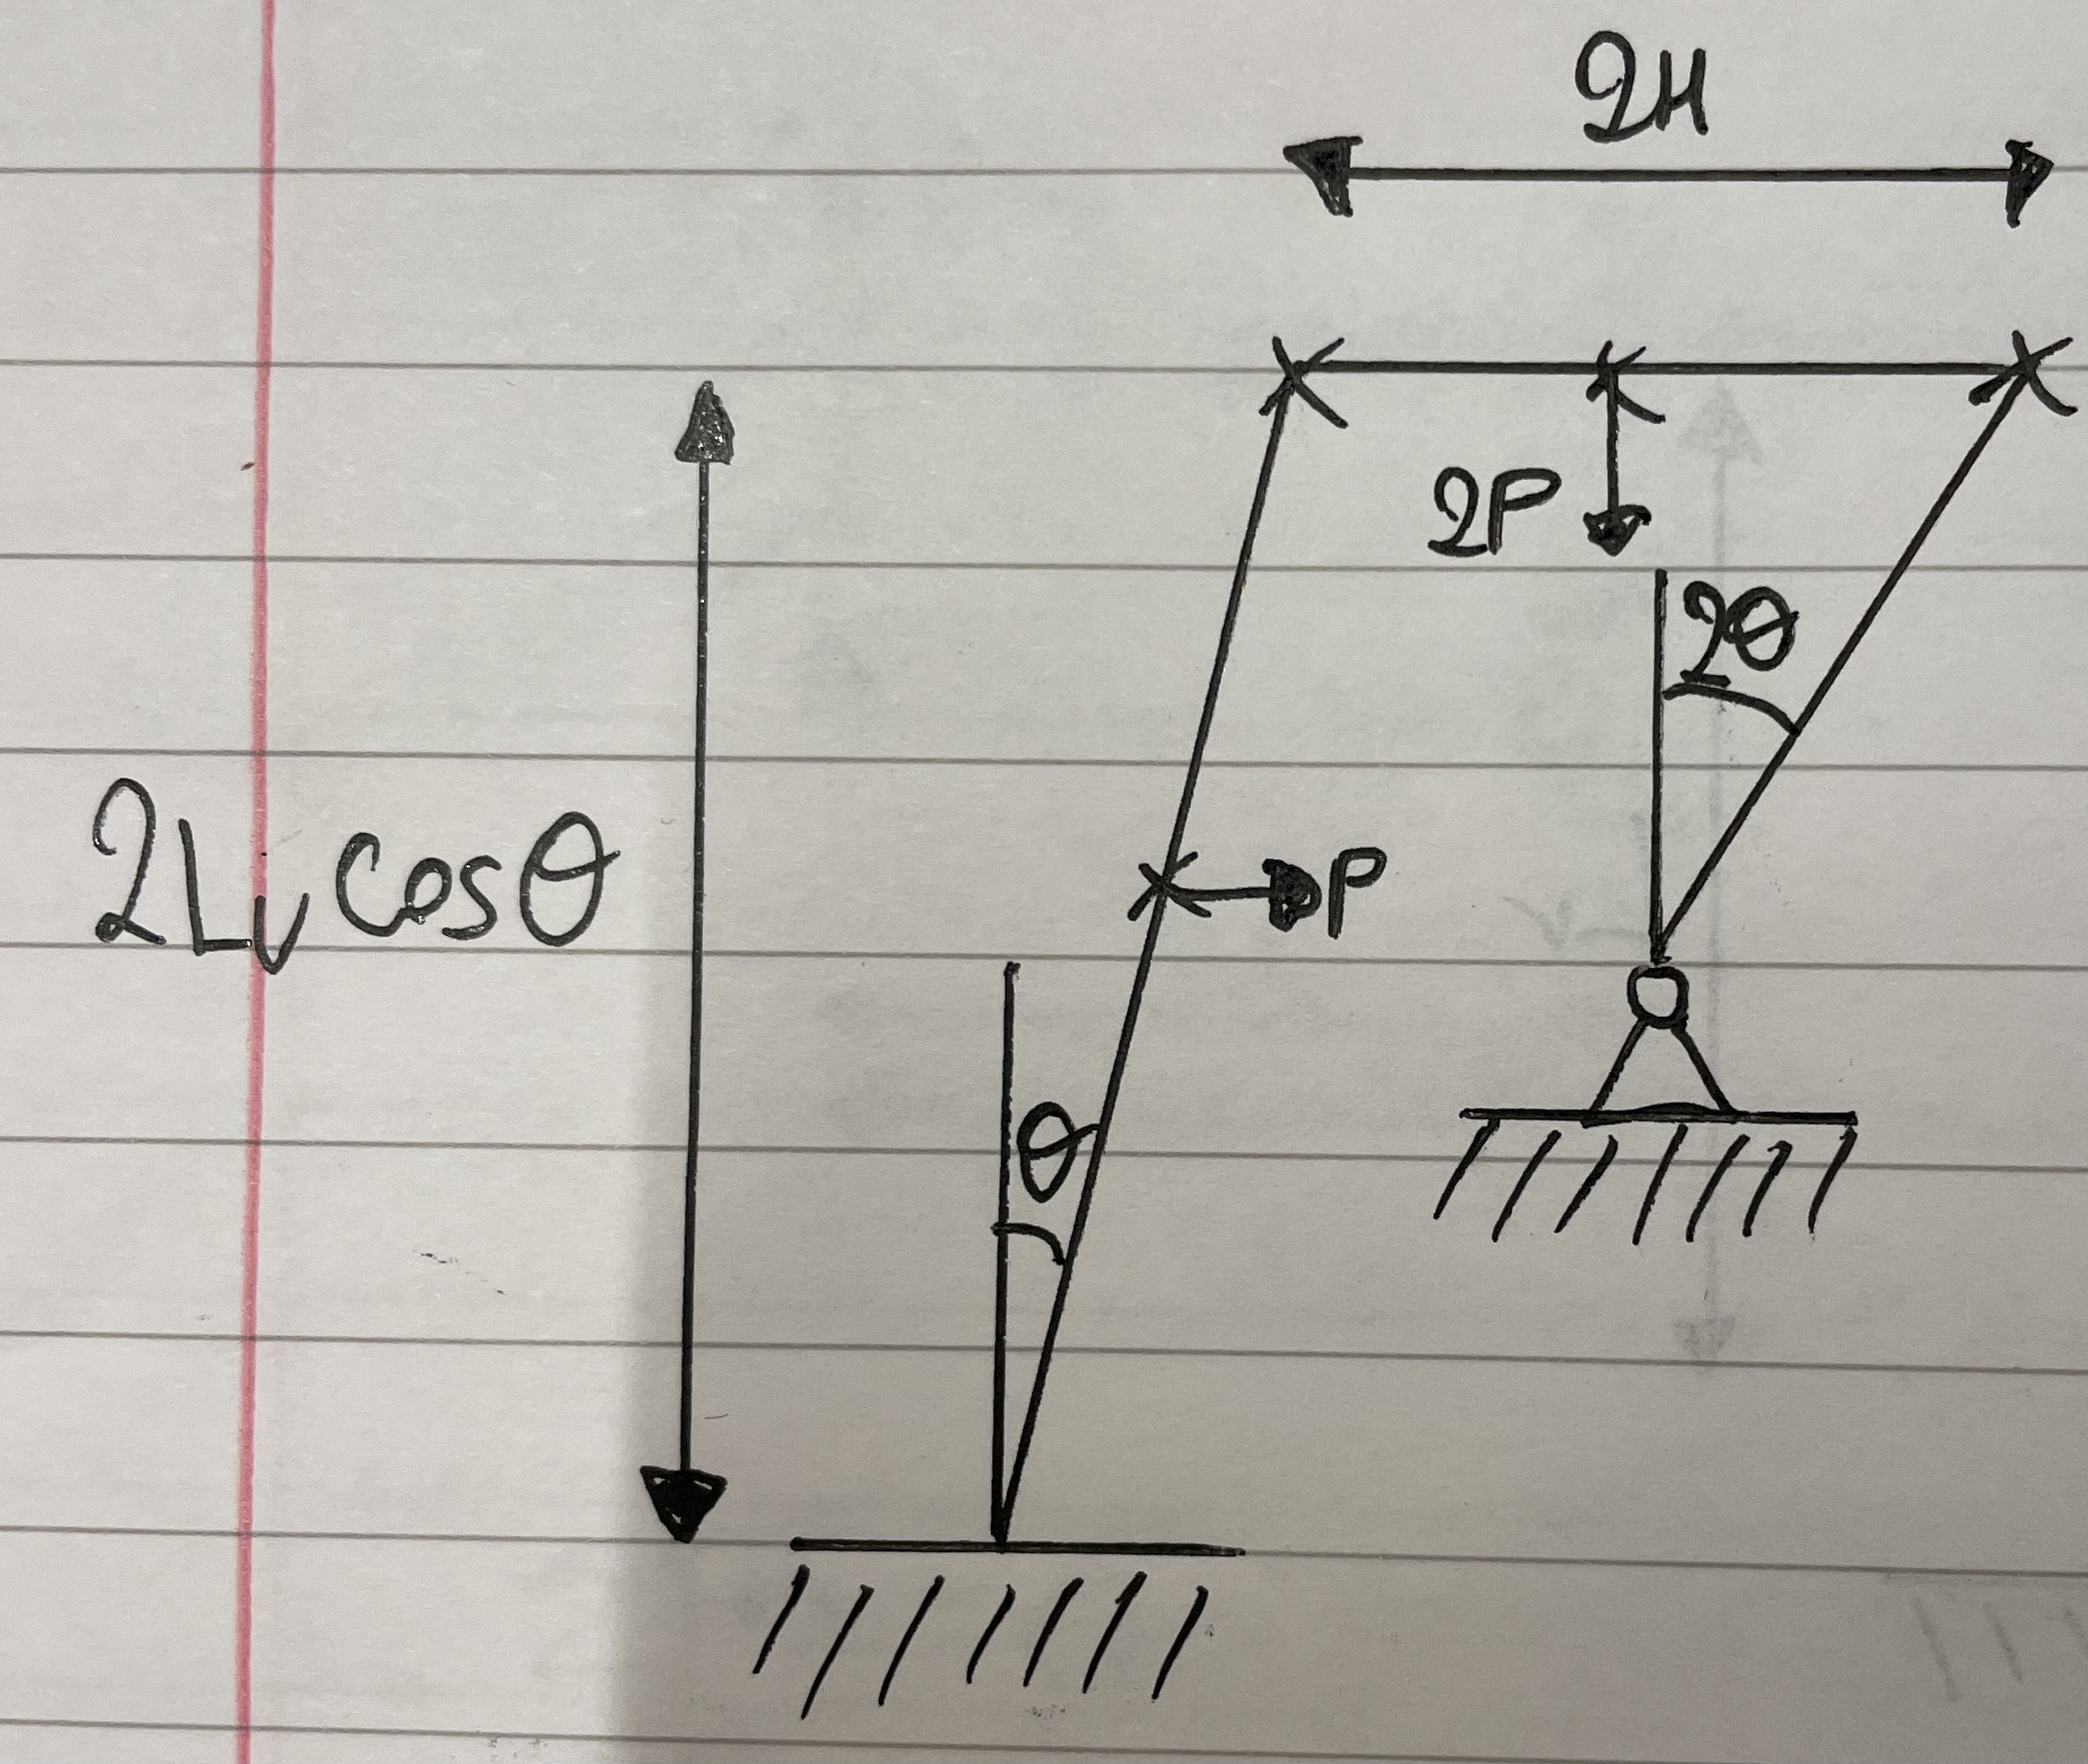 2H
2P
2θ
2Lv cosθ
P
θ